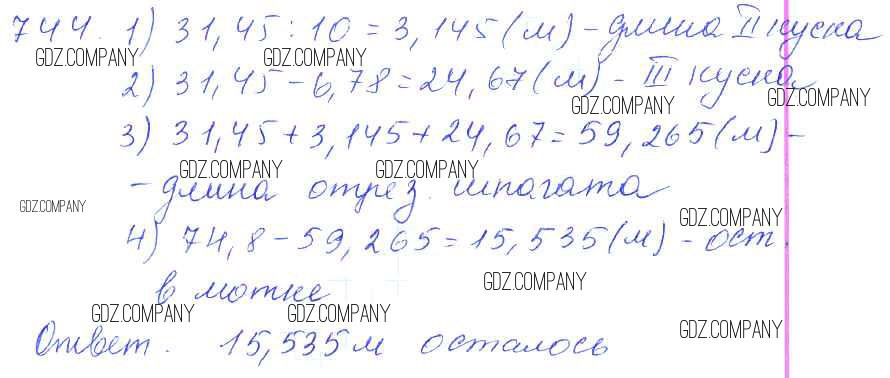 744. 1) 31,45 : 10 = 3,145 (м) - длина II куска
GDZ.COMPANY GDZ.COMPANY GDZ.COMPANY
2) 31,45 - 6,78 = 24,67 (м) - III куска
GDZ.COMPANY GDZ.COMPANY
3) 31,45 + 3,145 + 24,67 = 59,265 (м) -
GDZ.COMPANY GDZ.COMPANY
- длина отрез. шпагата
GDZ.COMPANY GDZ.COMPANY
4) 74,8 - 59,265 = 15,535 (м) - ост.
в мотке
GDZ.COMPANY
GDZ.COMPANY GDZ.COMPANY GDZ.COMPANY
Ответ. 15,535 м осталось